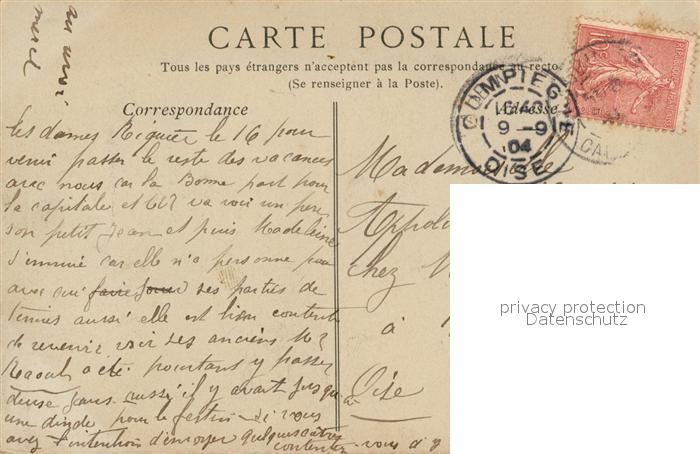 au revoir
CARTE POSTALE
Tous les pays étrangers n'acceptent pas la correspondance au recto
(Se renseigner à la Poste).
Correspondance
Adresse
COMPIEGNE
9 - 9
04
OISE
les dames Requier le 16 pour
venir passer le reste des vacances
avec nous car la Bonne part pour
la capitale et va voir un peu
son petit Jean et puis Madeleine
s'ennuie car elle n'a personne pour
avec qui faire jouer ses parties de
tennis aussi elle est bien contente
de revenir voir ses anciens
Raoul a été pourtant y passer
deux jours aussi il y avait jusqu'à
une dinde pour le festin Si vous
avez l'intention d'envoyer quelques autres
contentez-vous d'y
Mademoiselle
chez
à
Oise
privacy protection
Datenschutz